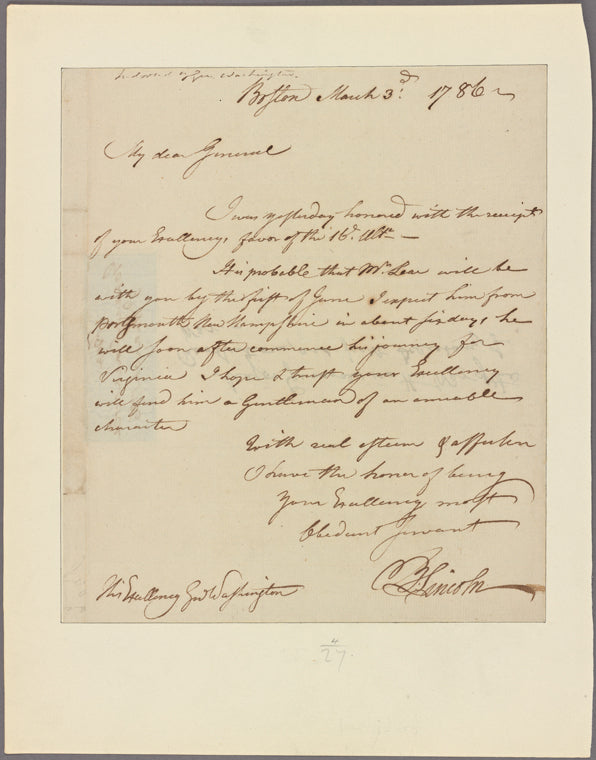 Indorsed by Gen. Washington.
Boston March 3d. 1786
My dear General
I was yesterday honored with the receipt
of your Excellencys favor of the 16th. Ulto
It is probable that Mr. Lear will be
with you by the first of June I expect him from
Portsmouth New Hampshire in about six days, he
will soon after commence his journey for
Virginia I hope & trust your Excellency
will find him a Gentleman of an amiable
character
With real esteem & affection
I have the honor of being
Your Excellency most
Obedient servant
B Lincoln
His Excellency Genl Washington
4
27.